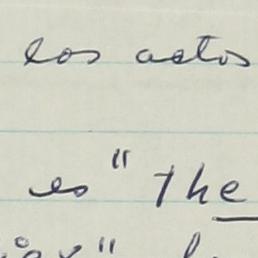 los actos
es " the